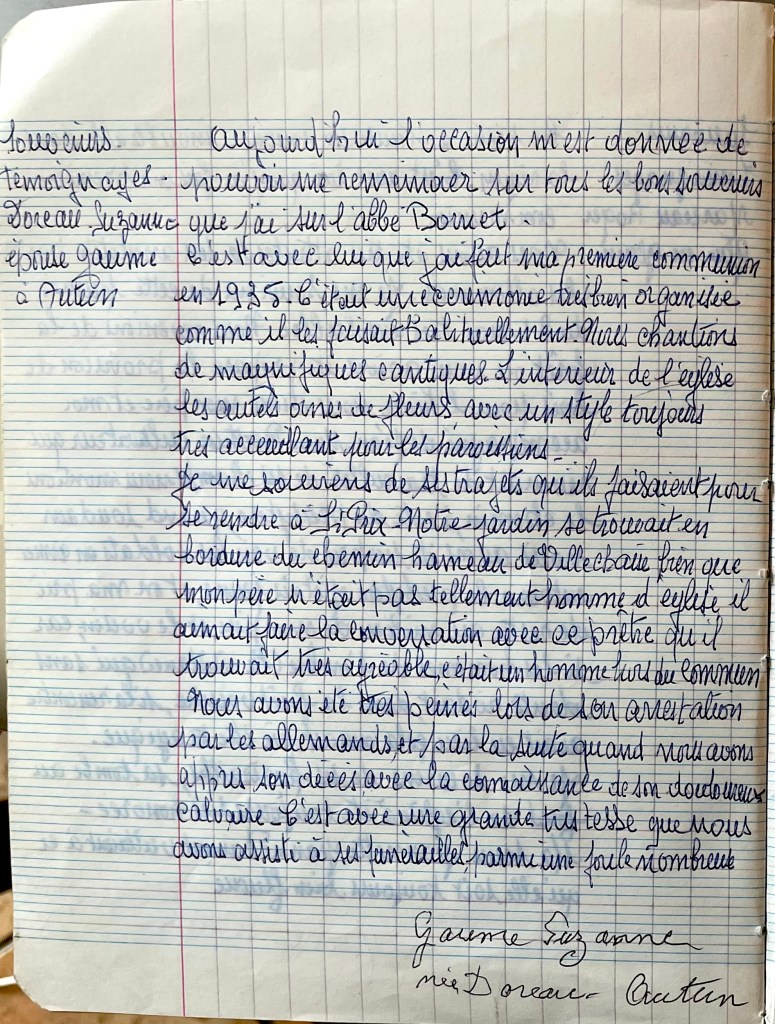 Souvenirs.
témoignages.
Doreau Suzanne
épouse Gaume
à Autun
aujourd'hui l'occasion m'est donnée de
pouvoir me remémorer sur tous les bons souvenirs
que j'ai sur l'abbé Bornet.
C'est avec lui que j'ai fait ma première communion
en 1935. C'était une cérémonie très bien organisée
comme il les faisait habituellement. Nous chantions
de magnifiques cantiques. L'intérieur de l'église
les autels ornés de fleurs avec un style toujours
très acceuillant pour les paroissiens.
Je me souviens de ses trajets qu'ils faisaient pour
se rendre à St Prix. Notre jardin se trouvait en
bordure du chemin hameau de Villechaise bien que
mon père n'était pas tellement homme d'église il
aimait faire la conversation avec ce prêtre qu'il
trouvait très agréable, c'était un homme hors du commun
Nous avons été très peinés lors de son arrestation
par les allemands, et par la suite quand nous avons
appris son décès avec la connaissance de son douloureux
calvaire. C'est avec une grande tristesse que nous
avons assisté à ses funérailles, parmi une foule nombreuse
Gaume Suzanne
née Doreau - Autun